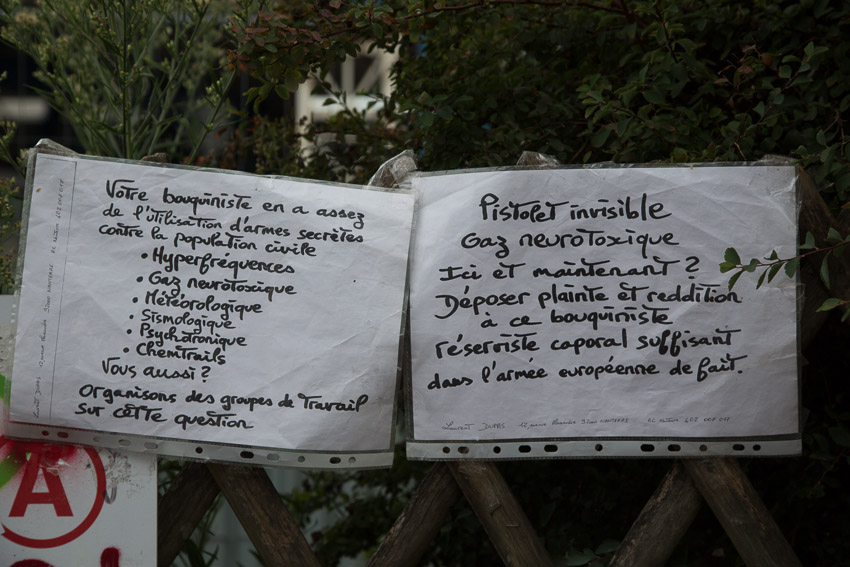 Votre bouquiniste en a assez
de l'utilisation d'armes secrètes
contre la population civile
• Hyperfréquences
• Gaz neurotoxique
• Météorologique
• Sismologique
• Psychotronique
• Chemtrails
Vous aussi ?
Organisons des groupes de travail
sur cette question
Pistolet invisible
Gaz neurotoxique
Ici et maintenant ?
Déposer plainte et reddition
à ce bouquiniste
réserviste caporal suffisant
dans l'armée européenne de fait.
Laurent
A